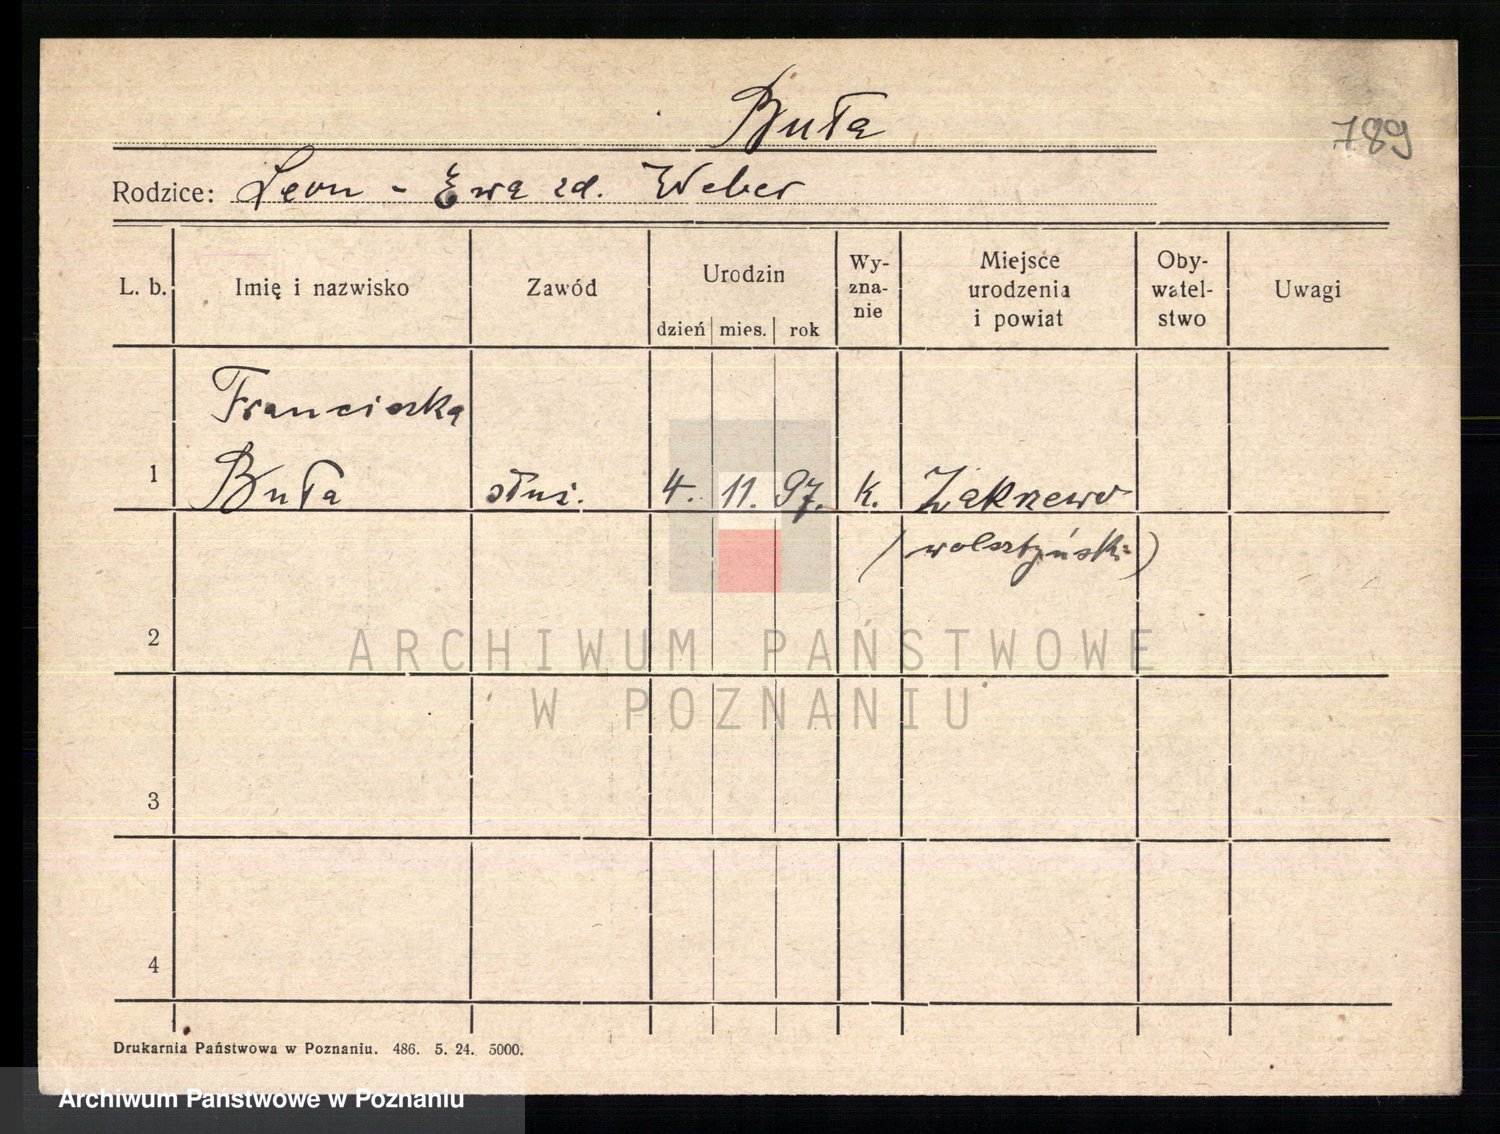 Buła
789
Rodzice: Leon - Ewa zd. Weber
L. b. Imię i nazwisko Zawód Urodzin dzień mies. rok Wy-zna-nie Miejsce urodzenia i powiat Oby-watel-stwo Uwagi
Franciszka
1 Buła służ. 4. 11. 97. k. Zakrzewo
(wolsztyński)
2
ARCHIWUM PAŃSTWOWE
W POZNANIU
3
4
Drukarnia Państwowa w Poznaniu. 486. 5. 24. 5000.
Archiwum Państwowe w Poznaniu